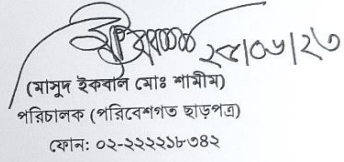 ২৮/০৬/২৩
(মাসুদ ইকবাল মোঃ শামীম)
পরিচালক (পরিবেশগত ছাড়পত্র)
ফোন: ০২-২২২২১৮৩৪২